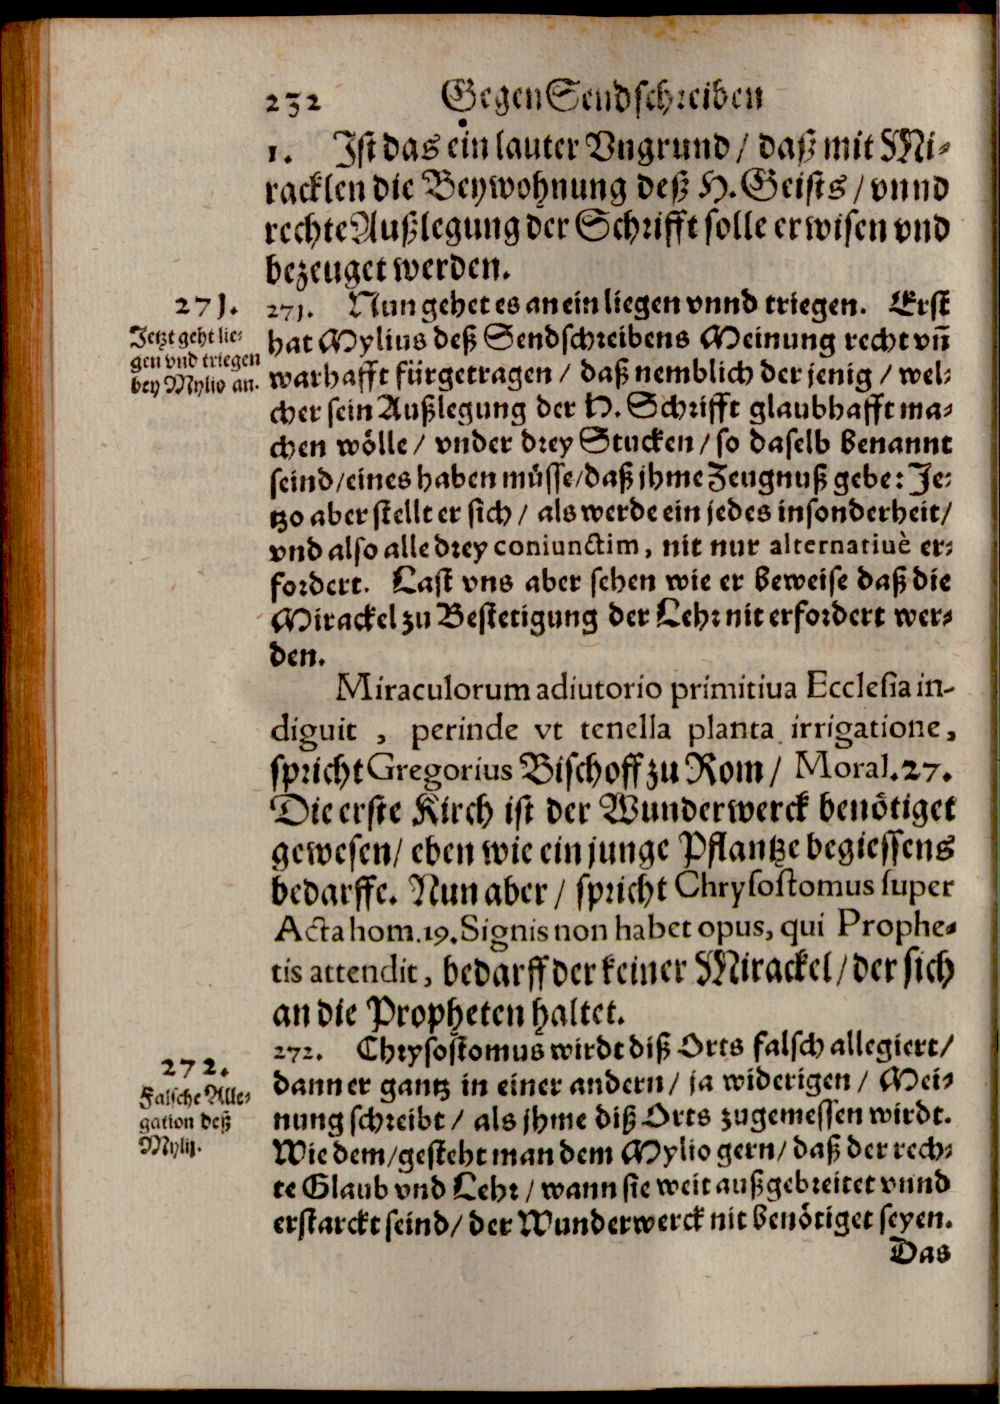 232 GegenSendschreiben
1. Ist das ein lauter Vngrund / daß mit Mi-
racklen die Beywohnung deß H. Geists / vnnd
rechte Außlegung der Schrifft solle erwisen vnd
bezeuget werden.
271.
Jetzt geht lie-
gen vnd triegen
bey Mylio an.
271. Nun gehet es an ein liegen vnnd triegen. Erst
hat Mylius deß Sendschreibens Meinung recht vñ
warhafft fürgetragen / daß nemblich der jenig / wel-
cher sein Außlegung der H. Schrifft glaubhafft ma-
chen wölle / vnder drey Stucken / so daselb benannt
seind / eines haben müsse / daß jhme Zeugnuß gebe: Je-
tzo aber stellt er sich / als werde ein jedes insonderheit /
vnd also alle drey coniunctim, nit nur alternatiuè er-
fordert. Last vns aber sehen wie er beweise daß die
Mirackel zu Bestetigung der Lehr nit erfordert wer-
den.
Miraculorum adiutorio primitiua Ecclesia in-
diguit , perinde vt tenella planta irrigatione,
spricht Gregorius Bischoff zu Rom / Moral. 27.
Die erste Kirch ist der Wunderwerck benötiget
gewesen / eben wie ein junge Pflantze begiessens
bedarffe. Nun aber / spricht Chrysostomus super
Acta hom. 19. Signis non habet opus, qui Prophe-
tis attendit, bedarff der keiner Mirackel / der sich
an die Propheten haltet.
272.
Falsche Alle-
gation deß
Mylij.
272. Chrysostomus wirdt diß Orts falsch allegiert /
dann er gantz in einer andern / ja widerigen / Mei-
nung schreibt / als jhme diß Orts zugemessen wirdt.
Wie dem / gesteht man dem Mylio gern / daß der rech-
te Glaub vnd Lehr / wann sie weit außgebreitet vnnd
erstarckt seind / der Wunderwerck nit benötiget seyen.
Das